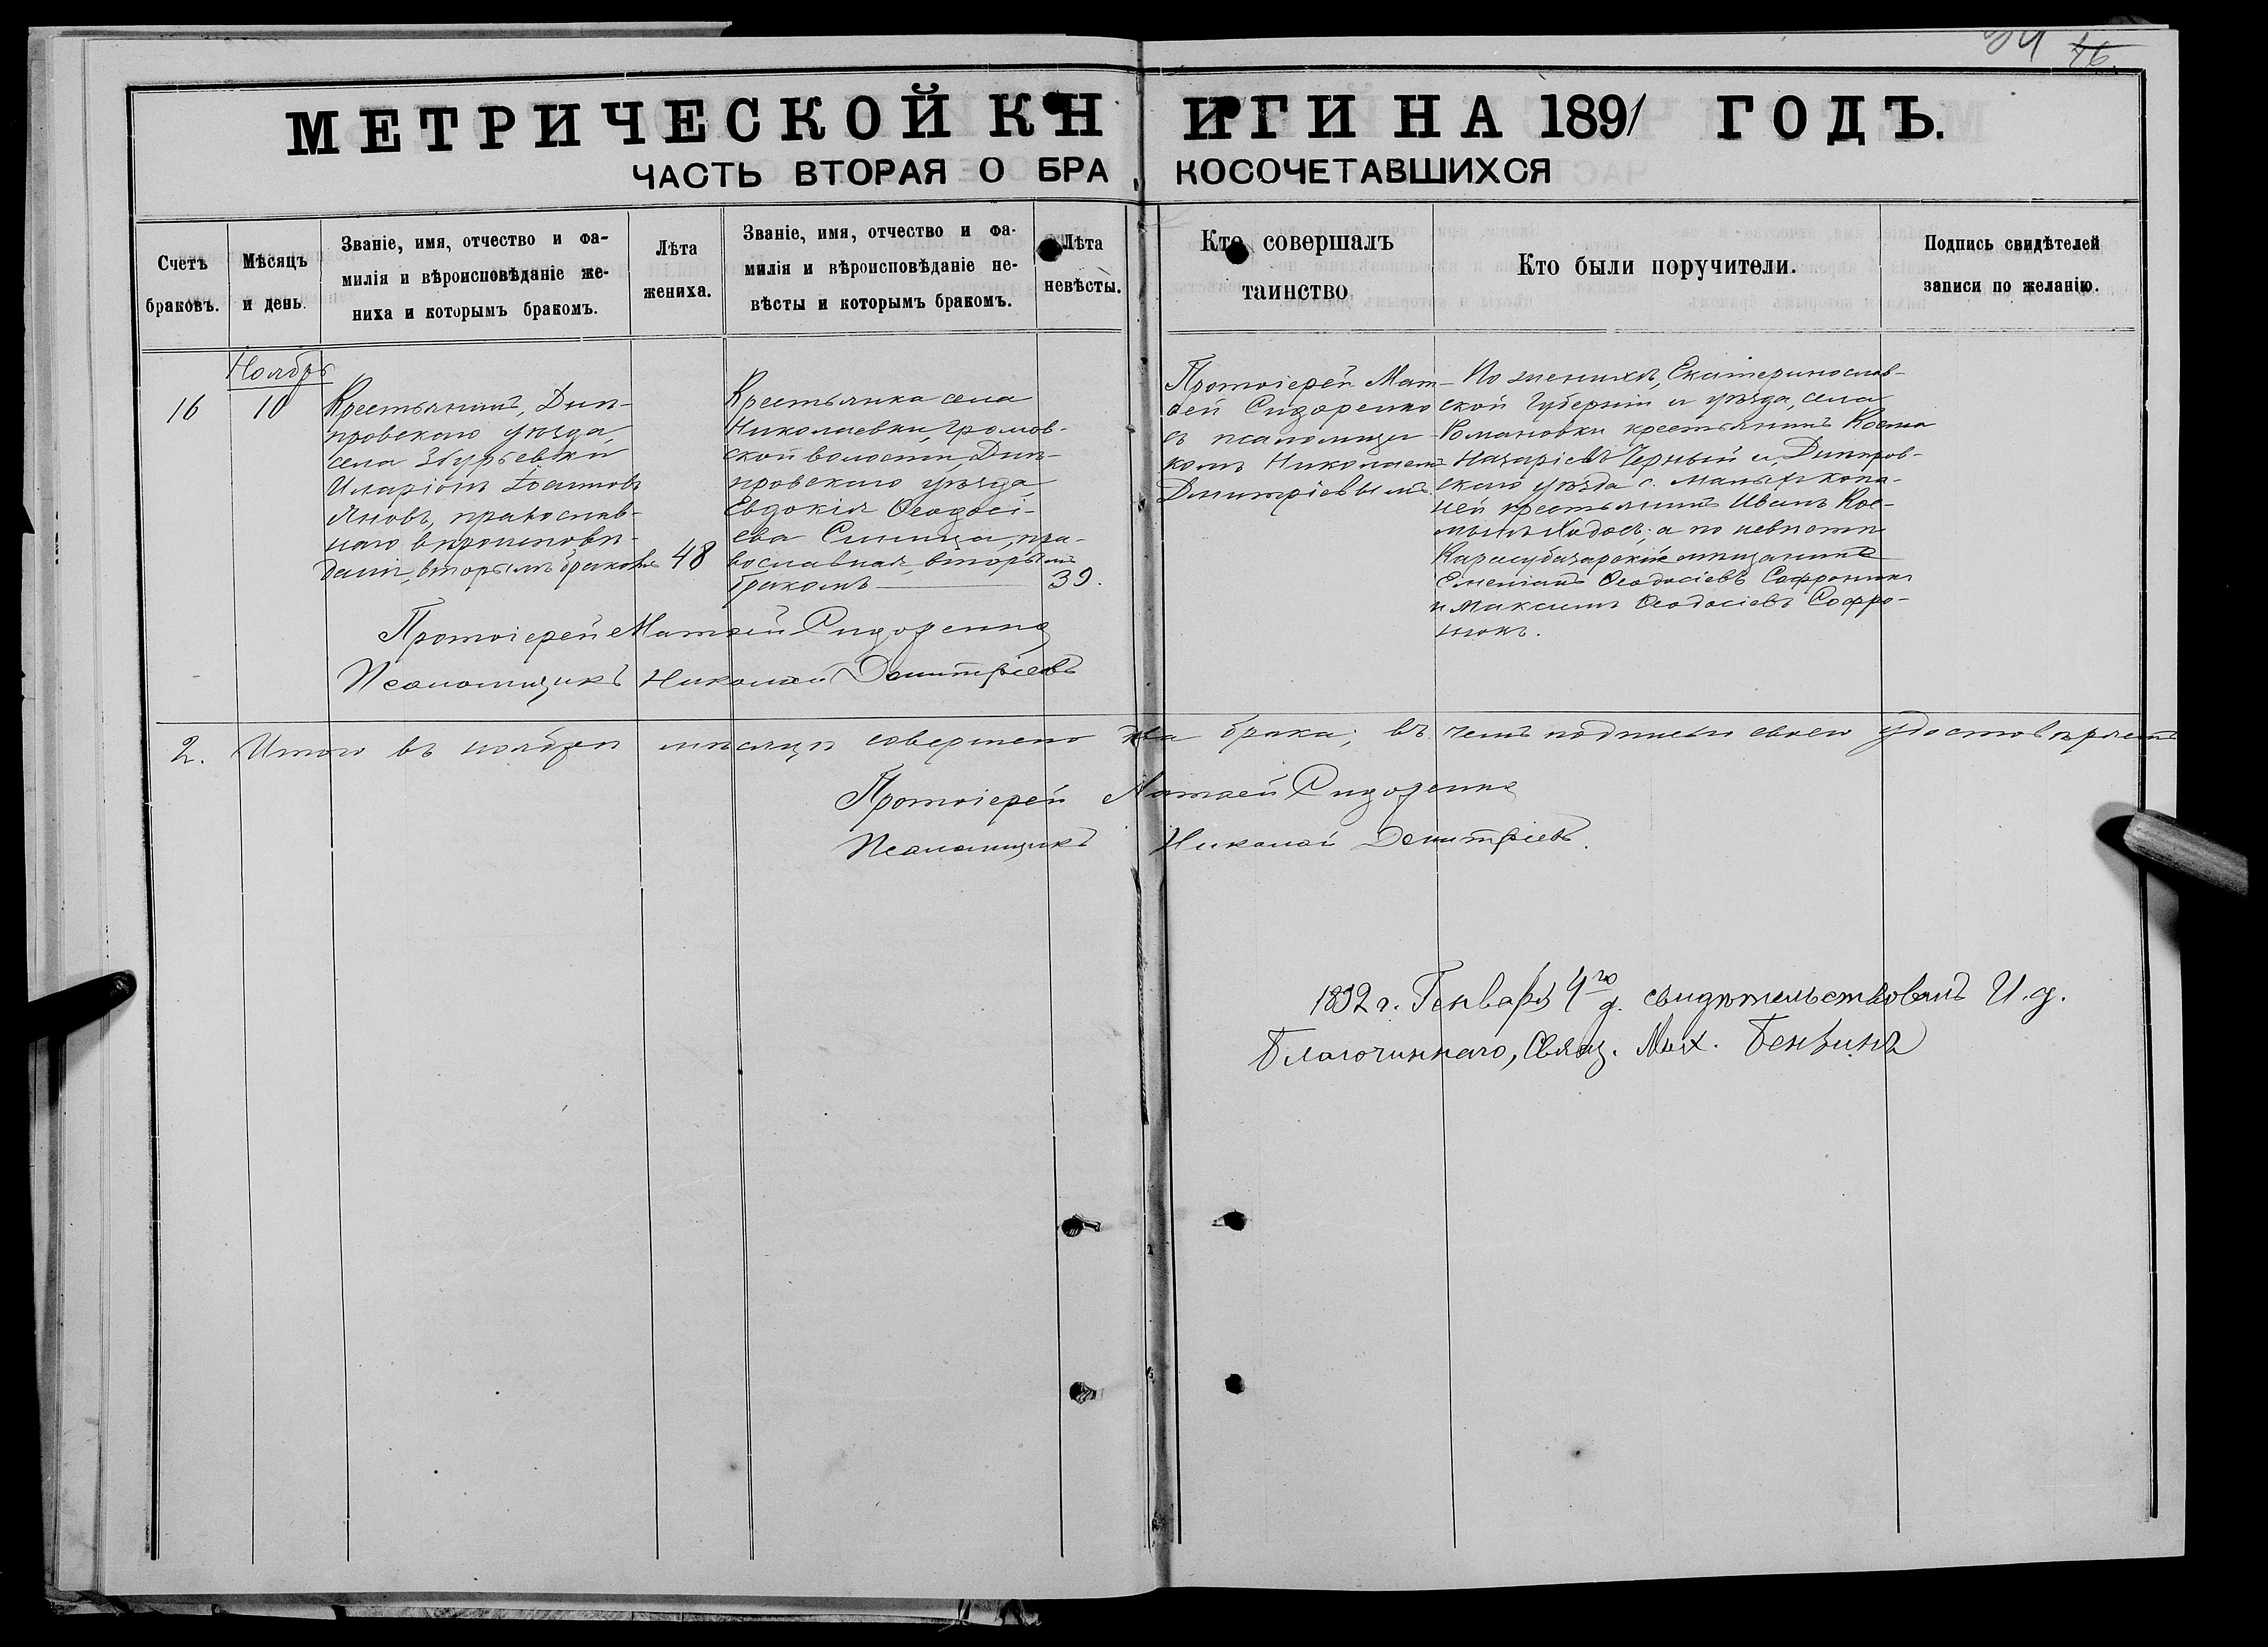 46.
МЕТРИЧЕСКОЙ КНИГИ НА 1891 ГОДЪ.
ЧАСТЬ ВТОРАЯ О БРАКОСОЧЕТАВШИХСЯ
Счетъ
браковъ.
Мѣсяцъ
и день.
Званіе, имя, отчество и фа-
милія и вѣроисповѣданіе же-
ниха и которымъ бракомъ.
Лѣта
жениха.
Званіе, имя, отчество и фа-
милія и вѣроисповѣданіе не-
вѣсты и которымъ бракомъ.
Лѣта
невѣсты.
Кто совершалъ
таинство.
Кто были поручители.
Подпись свидѣтелей
записи по желанію.
16
Ноябрь
10
Крестьянинъ, Днѣ-
провскаго уѣзда,
села Збурьевки
Иларіонъ Іоанновъ
Яновъ, православ-
наго вѣроисповѣ-
данія, вторымъ бракомъ
48
Крестьянка села
Николаевки, Громов-
ской волости, Днѣ-
провскаго уѣзда,
Евдокія Ѳеодосі-
ева Синица, пра-
вославная, вторымъ
бракомъ
39.
Протоіерей Мат-
ѳей Сидоренко
съ псаломщи-
комъ Николаемъ
Димитріевымъ.
По женихѣ, Екатеринослав-
ской губерніи и уѣзда, села
Романовки крестьянинъ Косма
Назаріевъ Черный и, Днѣпров-
скаго уѣзда с. Малыхъ Копа-
ней крестьянинъ Иванъ Кос-
минъ Ходосъ; а по невѣстѣ
Карасубазарскіе мѣщанинъ
Ѳеодосіевъ Софронюкъ
и Максимъ Ѳеодосіевъ Софро-
нюкъ.
Протоіерей Матѳей Сидоренко
Псаломщикъ Николай Димитріевъ
2. Итого въ ноябрѣ мѣсяцѣ совершено два брака; въ чемъ подписью своею удостовѣряемъ
Протоіерей Матѳей Сидоренко
Псаломщикъ Николай Димитріевъ.
1892 г. Генваря 4го д. свидѣтельствовалъ И. д.
Благочиннаго, Свящ. Мих.